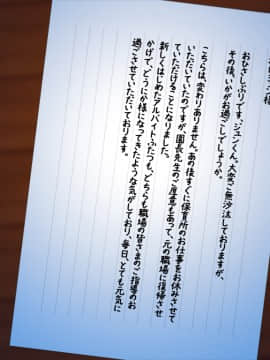 おひさしぶりです、ジュンくん。大変ご無沙汰しておりますが、
その後、いかがお過ごしでしょうか。
こちらは、変わりありません。あの後すぐに保育所のお仕事をお休みさせて
いただいていたのですが、園長先生のご厚意もあって、元の職場に復帰させ
ていただけることになりました。
新しくはじめたアルバイトふたつも、どちらも職場の皆さまのご指導のお
かげで、どうにか様になってきたような気がしており、毎日、とても元気に
過ごさせていただいております。